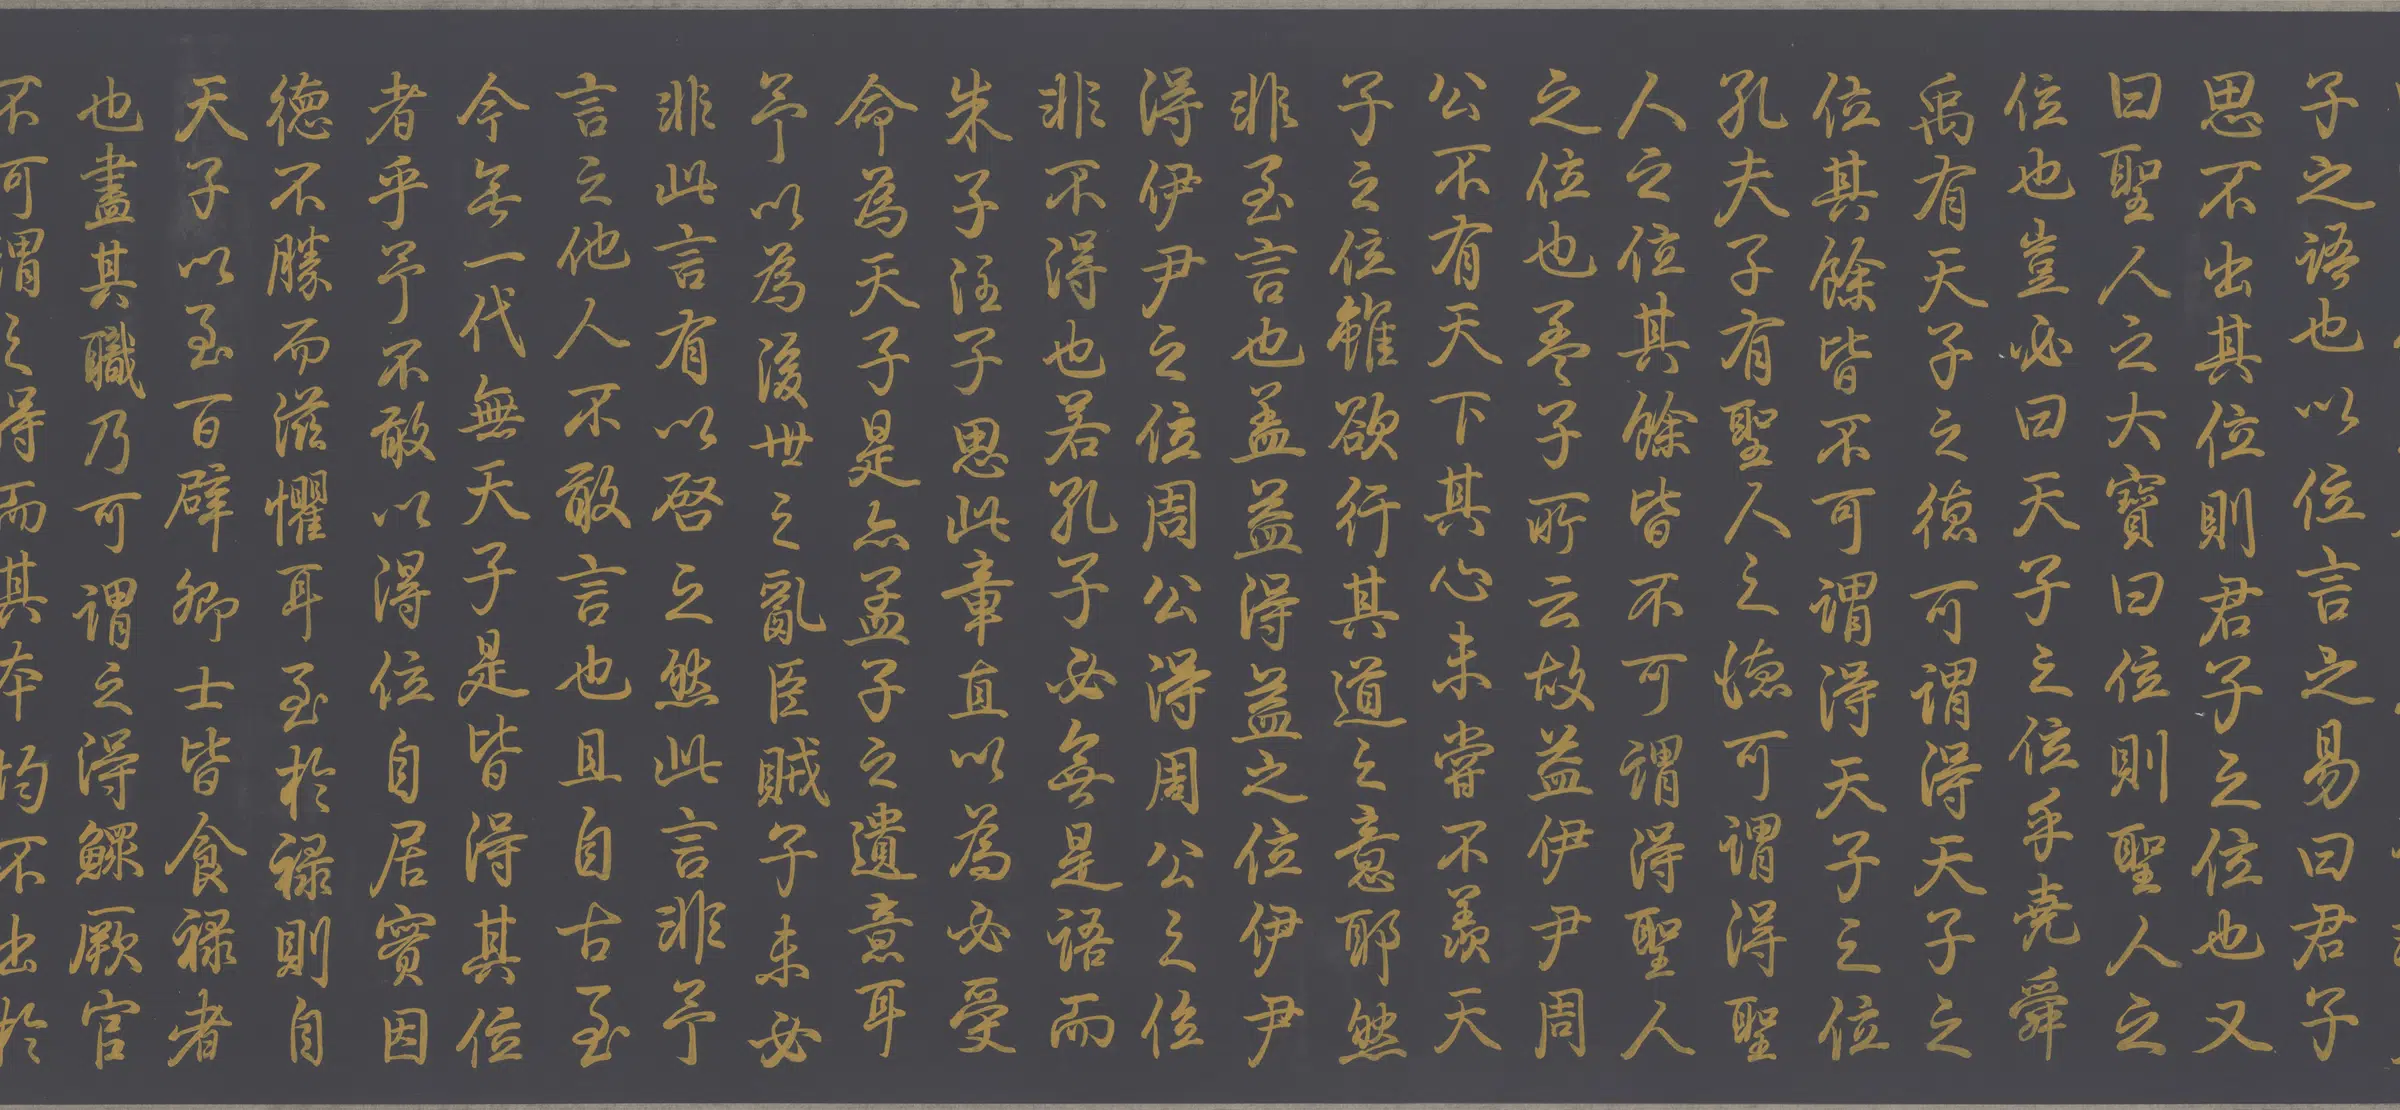 子之語也以位言之易曰君子
思不出其位則君子之位也又
曰聖人之大寶曰位則聖人之
位也豈必曰天子之位乎堯舜
禹有天子之德可謂得天子之
位其餘皆不可謂得天子之位
孔夫子有聖人之德可謂得聖
人之位其餘皆不可謂得聖人
之位也孟子所云故益伊尹周
公不有天下其心未嘗不羨天
子之位雖欲行其道之意耶然
非至言也盖益得益之位伊尹
得伊尹之位周公得周公之位
非不得也若孔子必無是語而
朱子注子思此章直以為必受
命為天子是亦孟子之遺意耳
予以為後世之亂臣賊子未必
非此言有以啓之然此言非予
言之他人不敢言也且自古至
今無一代無天子是皆得其位
者乎予不敢以得位自居實因
德不勝而滋懼耳至於祿則自
天子以至百辟卿士皆食祿者
也盡其職乃可謂之得鰥厥官
不可謂之得而其本均不出於